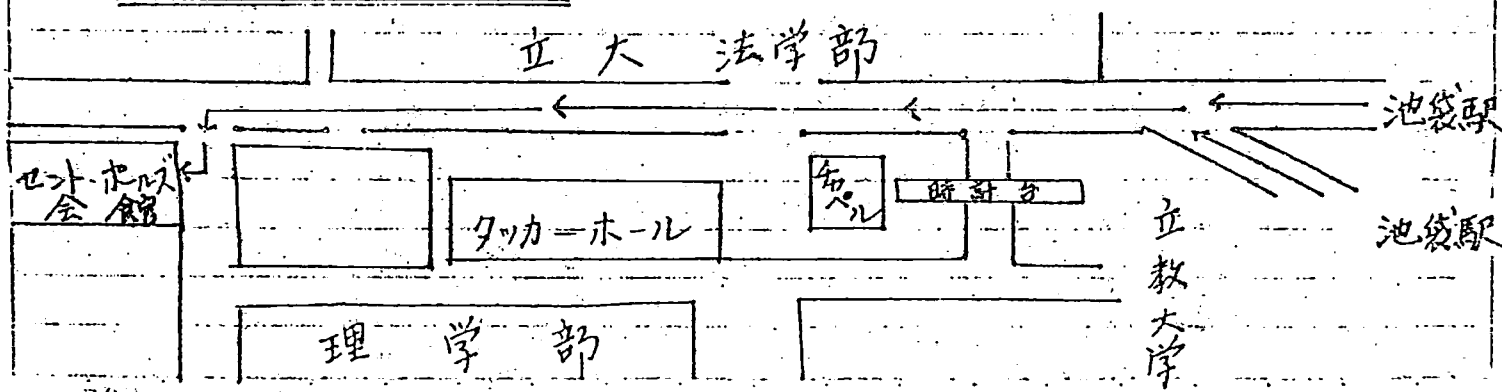 立大 法学部
池袋駅
セント・ポールズ
会館
タッカーホール
チャペル
時計台
立教大学
池袋駅
理学部